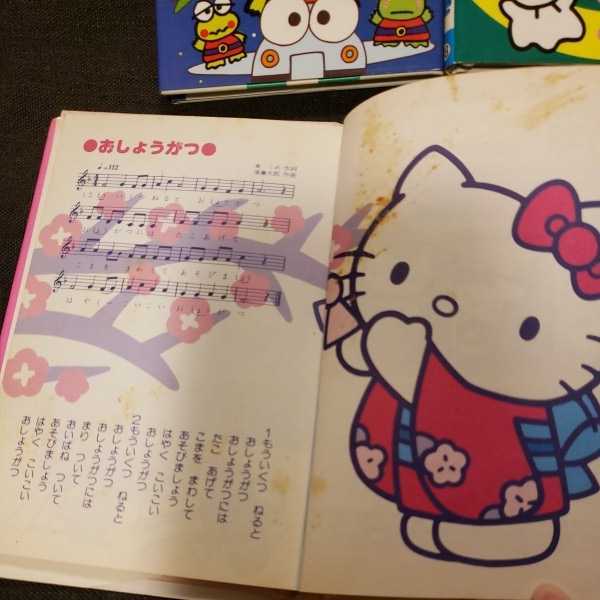 ●おしょうがつ●
こまを まわして あそびましょう
はやく こいこい おしょうがつ
1もういくつ ねると
おしょうがつ
おしょうがつには
たこ あげて
こまを まわして
あそびましょう
はやく こいこい
おしょうがつ
2もういくつ ねると
おしょうがつ
おしょうがつには
まり ついて
おいばね ついて
あそびましょう
はやく こいこい
おしょうがつ